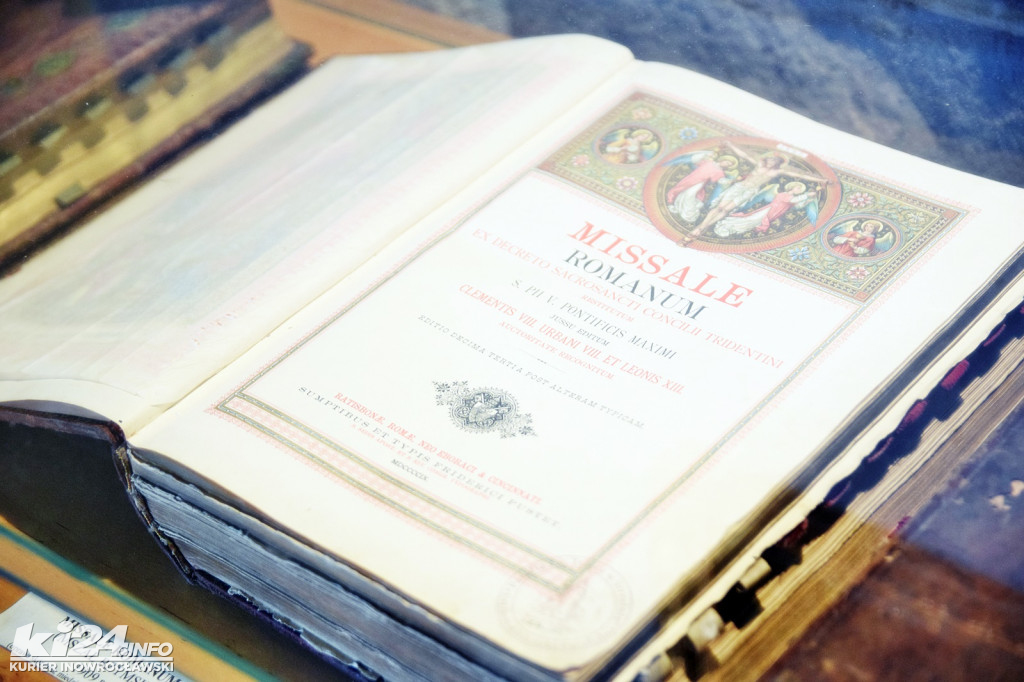 MISSALE
ROMANUM
EX DECRETO SACROSANCTI CONCILII TRIDENTINI
RESTITUTUM
S. PII V. PONTIFICIS MAXIMI
JUSSU EDITUM
CLEMENTIS VIII. URBANI VIII. ET LEONIS XIII.
AUCTORITATE RECOGNITUM
EDITIO DECIMA TERTIA POST ALTERAM TYPICAM.
RATISBONÆ, ROMÆ, NEO EBORACI & CINCINNATI.
SUMPTIBUS ET TYPIS FRIDERICI PUSTET
MDCCCCIX.
ki24.INFO
KURIER INOWROCŁAWSKI